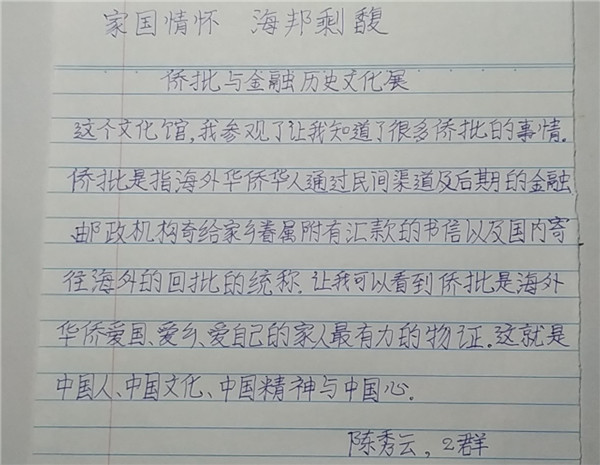 家国情怀 海邦剩馥
侨批与金融历史文化展
这个文化馆,我参观了让我知道了很多侨批的事情.
侨批是指海外华侨华人通过民间渠道及后期的金融
邮政机构寄给家乡眷属附有汇款的书信以及国内寄
往海外的回批的统称.让我可以看到侨批是海外
华侨爱国、爱乡、爱自己的家人最有力的物证.这就是
中国人、中国文化、中国精神与中国心.
陈秀云,2群